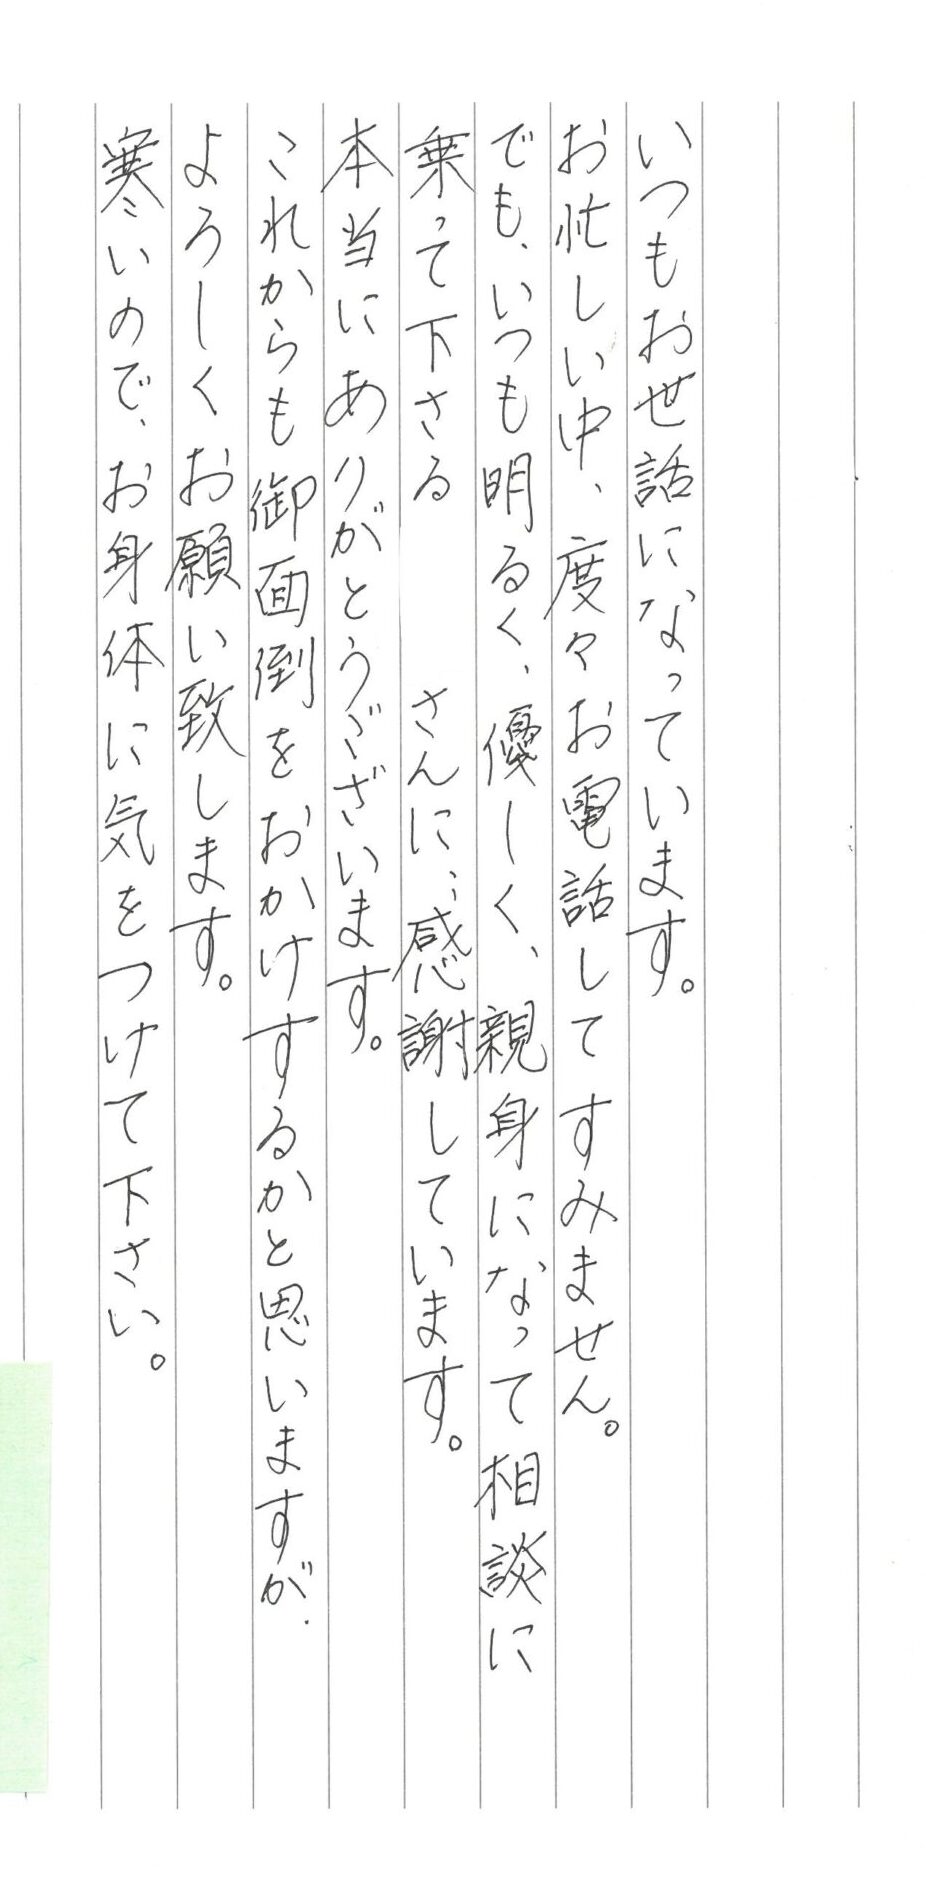 いつもお世話になっています。
お忙しい中、度々お電話してすみません。
でも、いつも明るく、優しく、親身になって相談に
乗って下さる　　　さんに、感謝しています。
本当にありがとうございます。
これからも御面倒をおかけするかと思いますが、
よろしくお願い致します。
寒いので、お身体に気をつけて下さい。